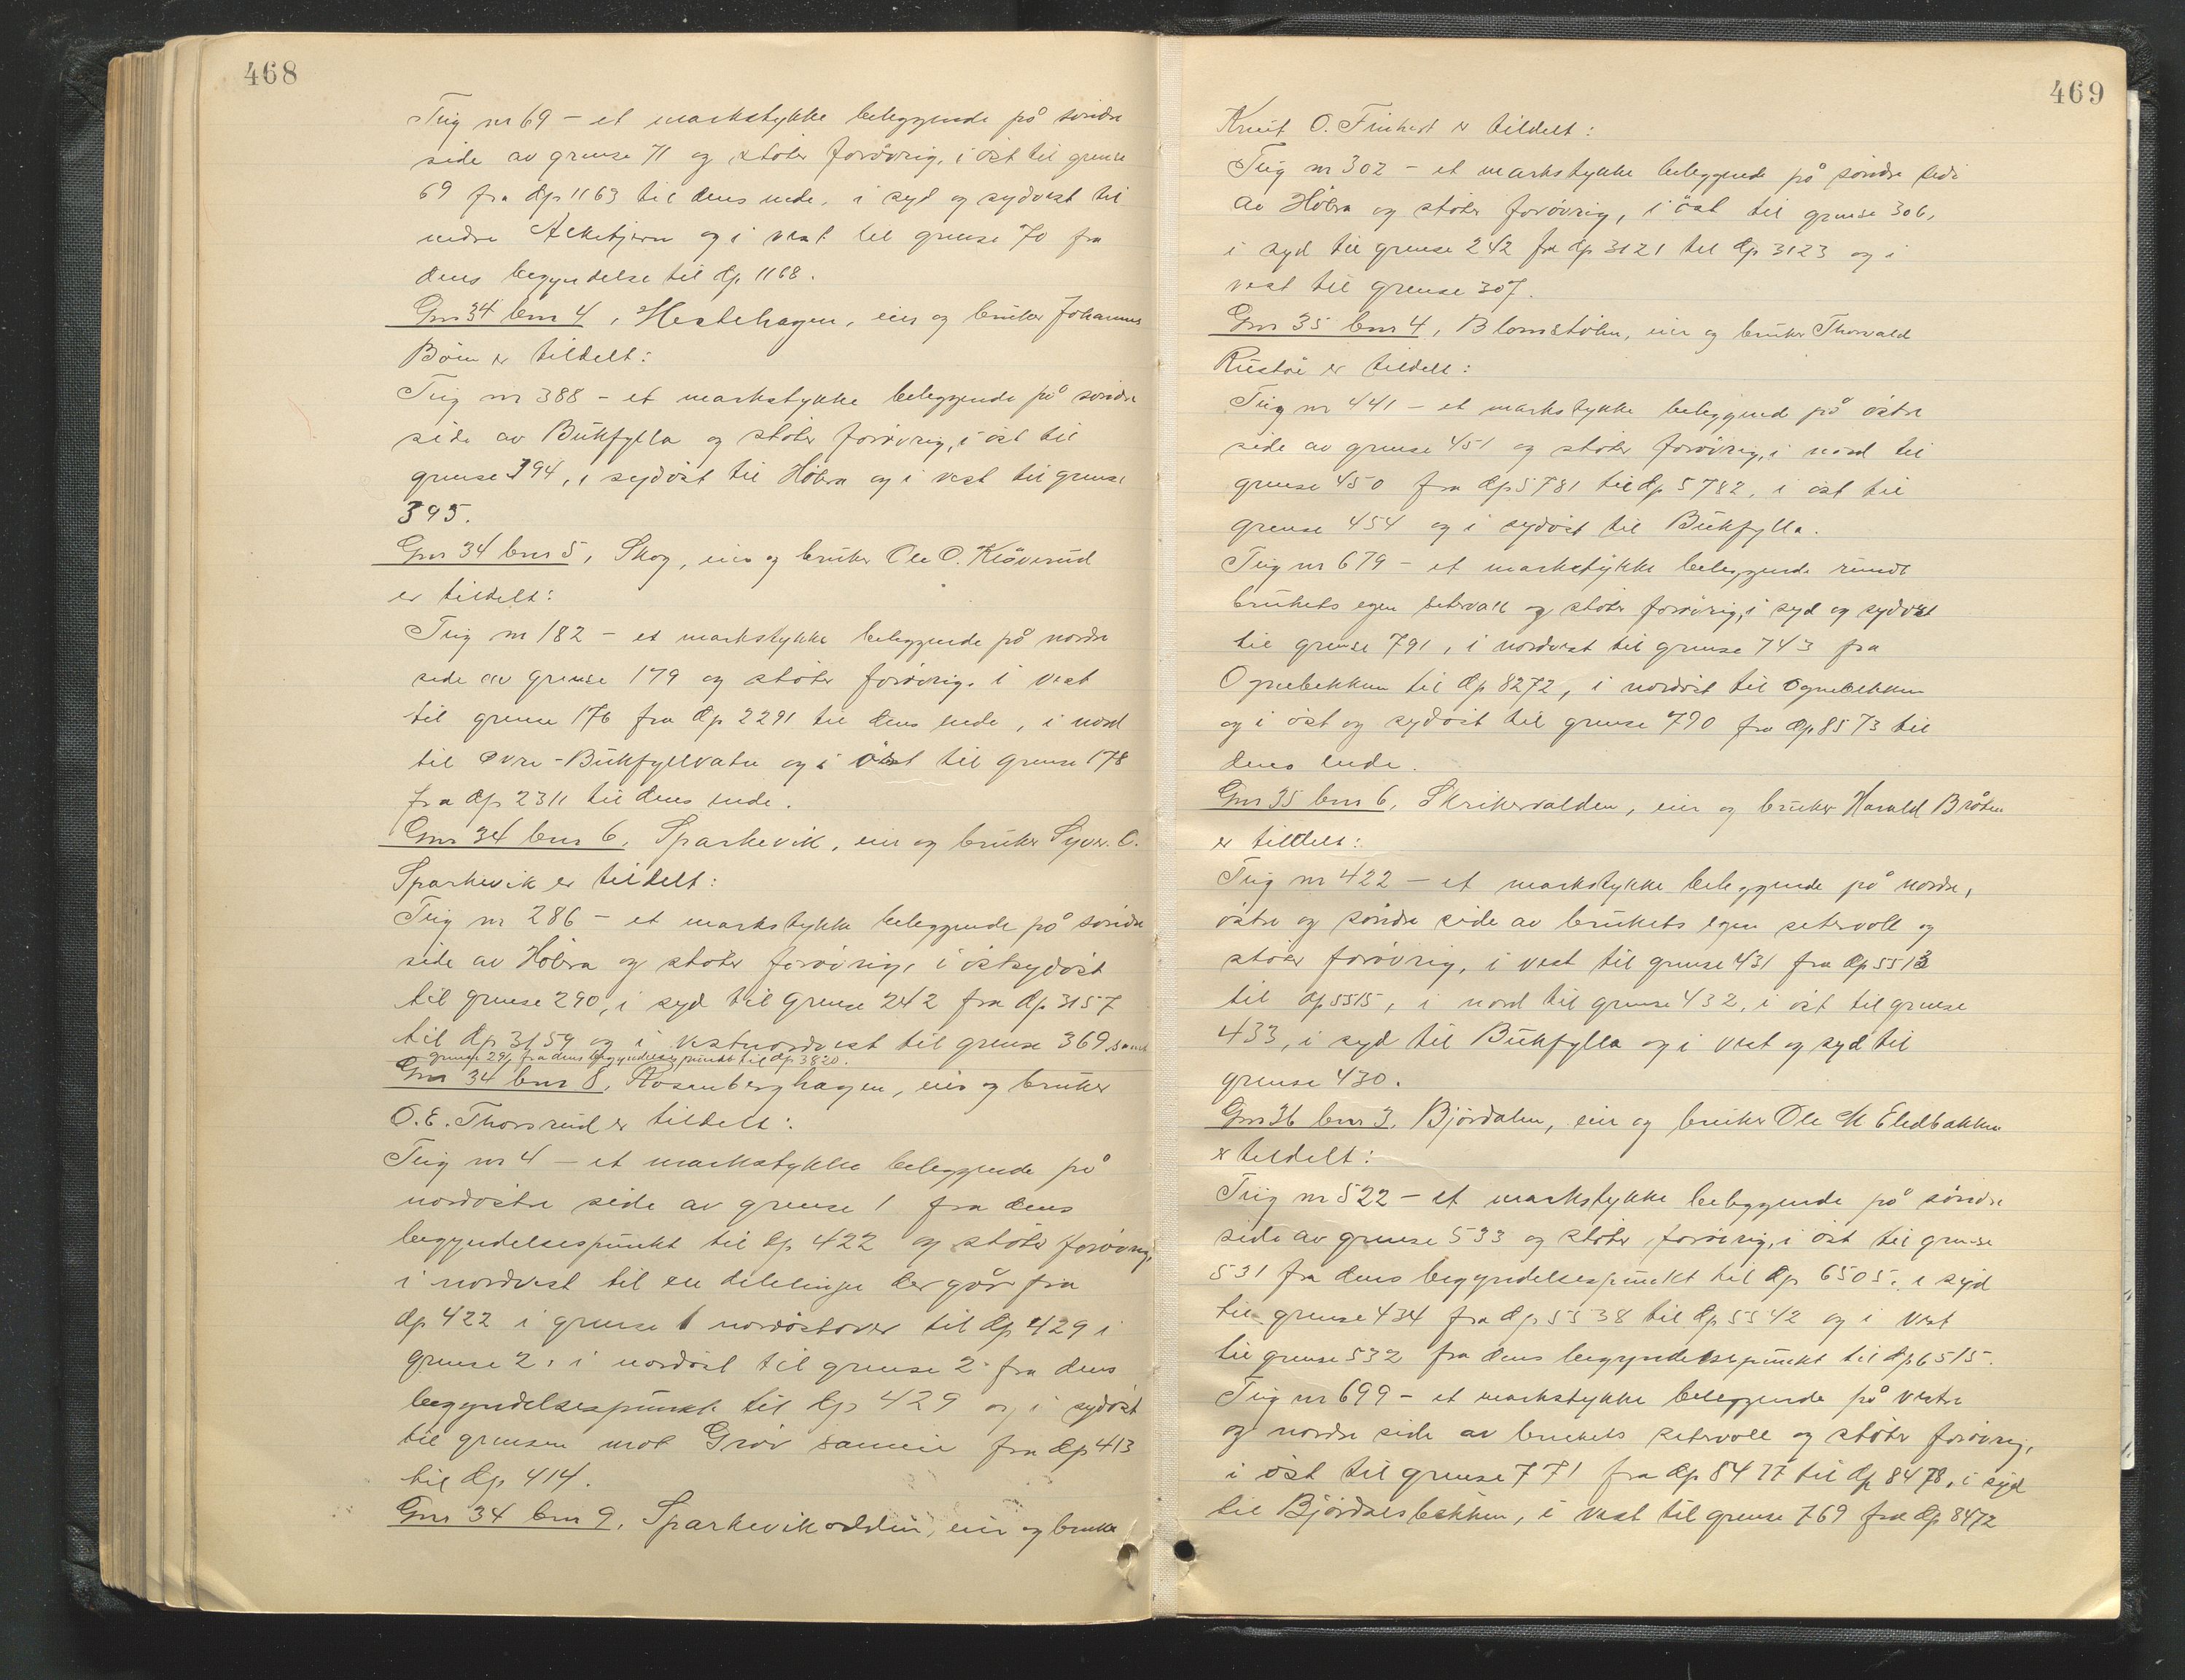 468
Teig nr 69 – et markstykke beleggende på söndre
side av grense 71 og stöter forövrig, i öst til grense
69 fra dp 1163 til dens ende, i syd og sydvest til
nedre Alketjern og i vest til grense 70 fra
dens begyndelse til dp. 1168.
Gnr 34 bnr 4, Hestehagen, eier og bruker Johannes
Böen er tildelt:
Teig nr 388 – et markstykke beleggende på söndre
side av Bukfylla og stöter forövrig, i öst til
grense 394, i sydöst til Hölera og i vest til grense
395.
Gnr 34 bnr 5, Skog, eier og bruker Ole O. Klöverud
er tildelt:
Teig nr 182 – et markstykke beleggende på nordre
side av grense 179 og stöter forövrig, i vest
til grense 176 fra dp 2291 til dens ende, i nord
til Övre-Bukfyllvatn og i öst til grense 178
fra dp 2311 til dens ende.
Gnr 34 bnr 6, Sparkevik, eier og bruker Syver O.
Sparkevik er tildelt:
Teig nr 286 – et markstykke beleggende på söndre
side av Hölera og stöter forövrig, i östsydöst
til grense 290, i syd til grense 242 fra dp 3157
til dp 3159 og i vestnordvest til grense 369 samt
grense 291 fra dens begyndelsespunkt til dp 3820.
Gnr 34 bnr 8, Rosenberghagen, eier og bruker
O. E. Thorsrud er tildelt:
Teig nr 4 – et markstykke beleggende på
nordöstre side av grense 1 fra dens
begyndelsespunkt til dp 422 og stöter forövrig,
i nordvest til en delelinje der går fra
dp 422 i grense 1 nordöstover til dp 429 i
grense 2, i nordöst til grense 2 fra dens
begyndelsespunkt til dp 429 og i sydöst
til grensen mot Gröv sameie fra dp 413
til dp 414.
Gnr 34 bnr 9, Sparkevikodden, eier og bruker
469
Knut O. Finhert er tildelt:
Teig nr 302 – et markstykke beleggende på söndre side
av Hölera og stöter forövrig, i öst til grense 306,
i syd til grense 242 fra dp 3121 til dp 3123 og i
vest til grense 307.
Gnr 35 bnr 4, Blomstölen, eier og bruker Thorvald
Rustöi er tildelt:
Teig nr 441 – et markstykke beleggend på östre
side av grense 451 og stöter forövrig, i nord til
grense 450 fra dp 5781 til dp 5782, i öst til
grense 454 og i sydöst til Bukfylla.
Teig nr 679 – et markstykke beleggende rundt
brukets egen setervoll og stöter forövrig, i syd og sydvest
til grense 791, i nordvest til grense 743 fra
Ognebekken til dp 8272, i nordöst til Ognebekken
og i öst og sydöst til grense 790 fra dp 8573 til
dens ende.
Gnr 35 bnr 6, Skrikervalden, eier og bruker Harald Bråten
er tildelt:
Teig nr 422 – et markstykke beleggende på nordre,
östre og söndre side av brukets egen setervoll og
stöter forövrig, i vest til grense 431 fra dp 5513
til dp 5515, i nord til grense 432, i öst til grense
433, i syd til Bukfylla og i vest og syd til
grense 430.
Gnr 36 bnr 3, Björdalen, eier og bruker Ole M Eledbakken
er tildelt:
Teig nr 522 – et markstykke beleggende på söndre
side av grense 533 og stöter forövrig, i öst til grense
531 fra dens begyndelsespunkt til dp 6505, i syd
til grense 434 fra dp 5538 til dp 5542 og i vest
til grense 532 fra dens begyndelsespunkt til dp 6515.
Teig nr 699 – et markstykke beleggende på vestre
og nordre side av brukets setervoll og stöter forövrig,
i öst til grense 771 fra dp 8477 til dp 8478, i syd
til Björdalsbekken, i vest til grense 769 fra dp 8472